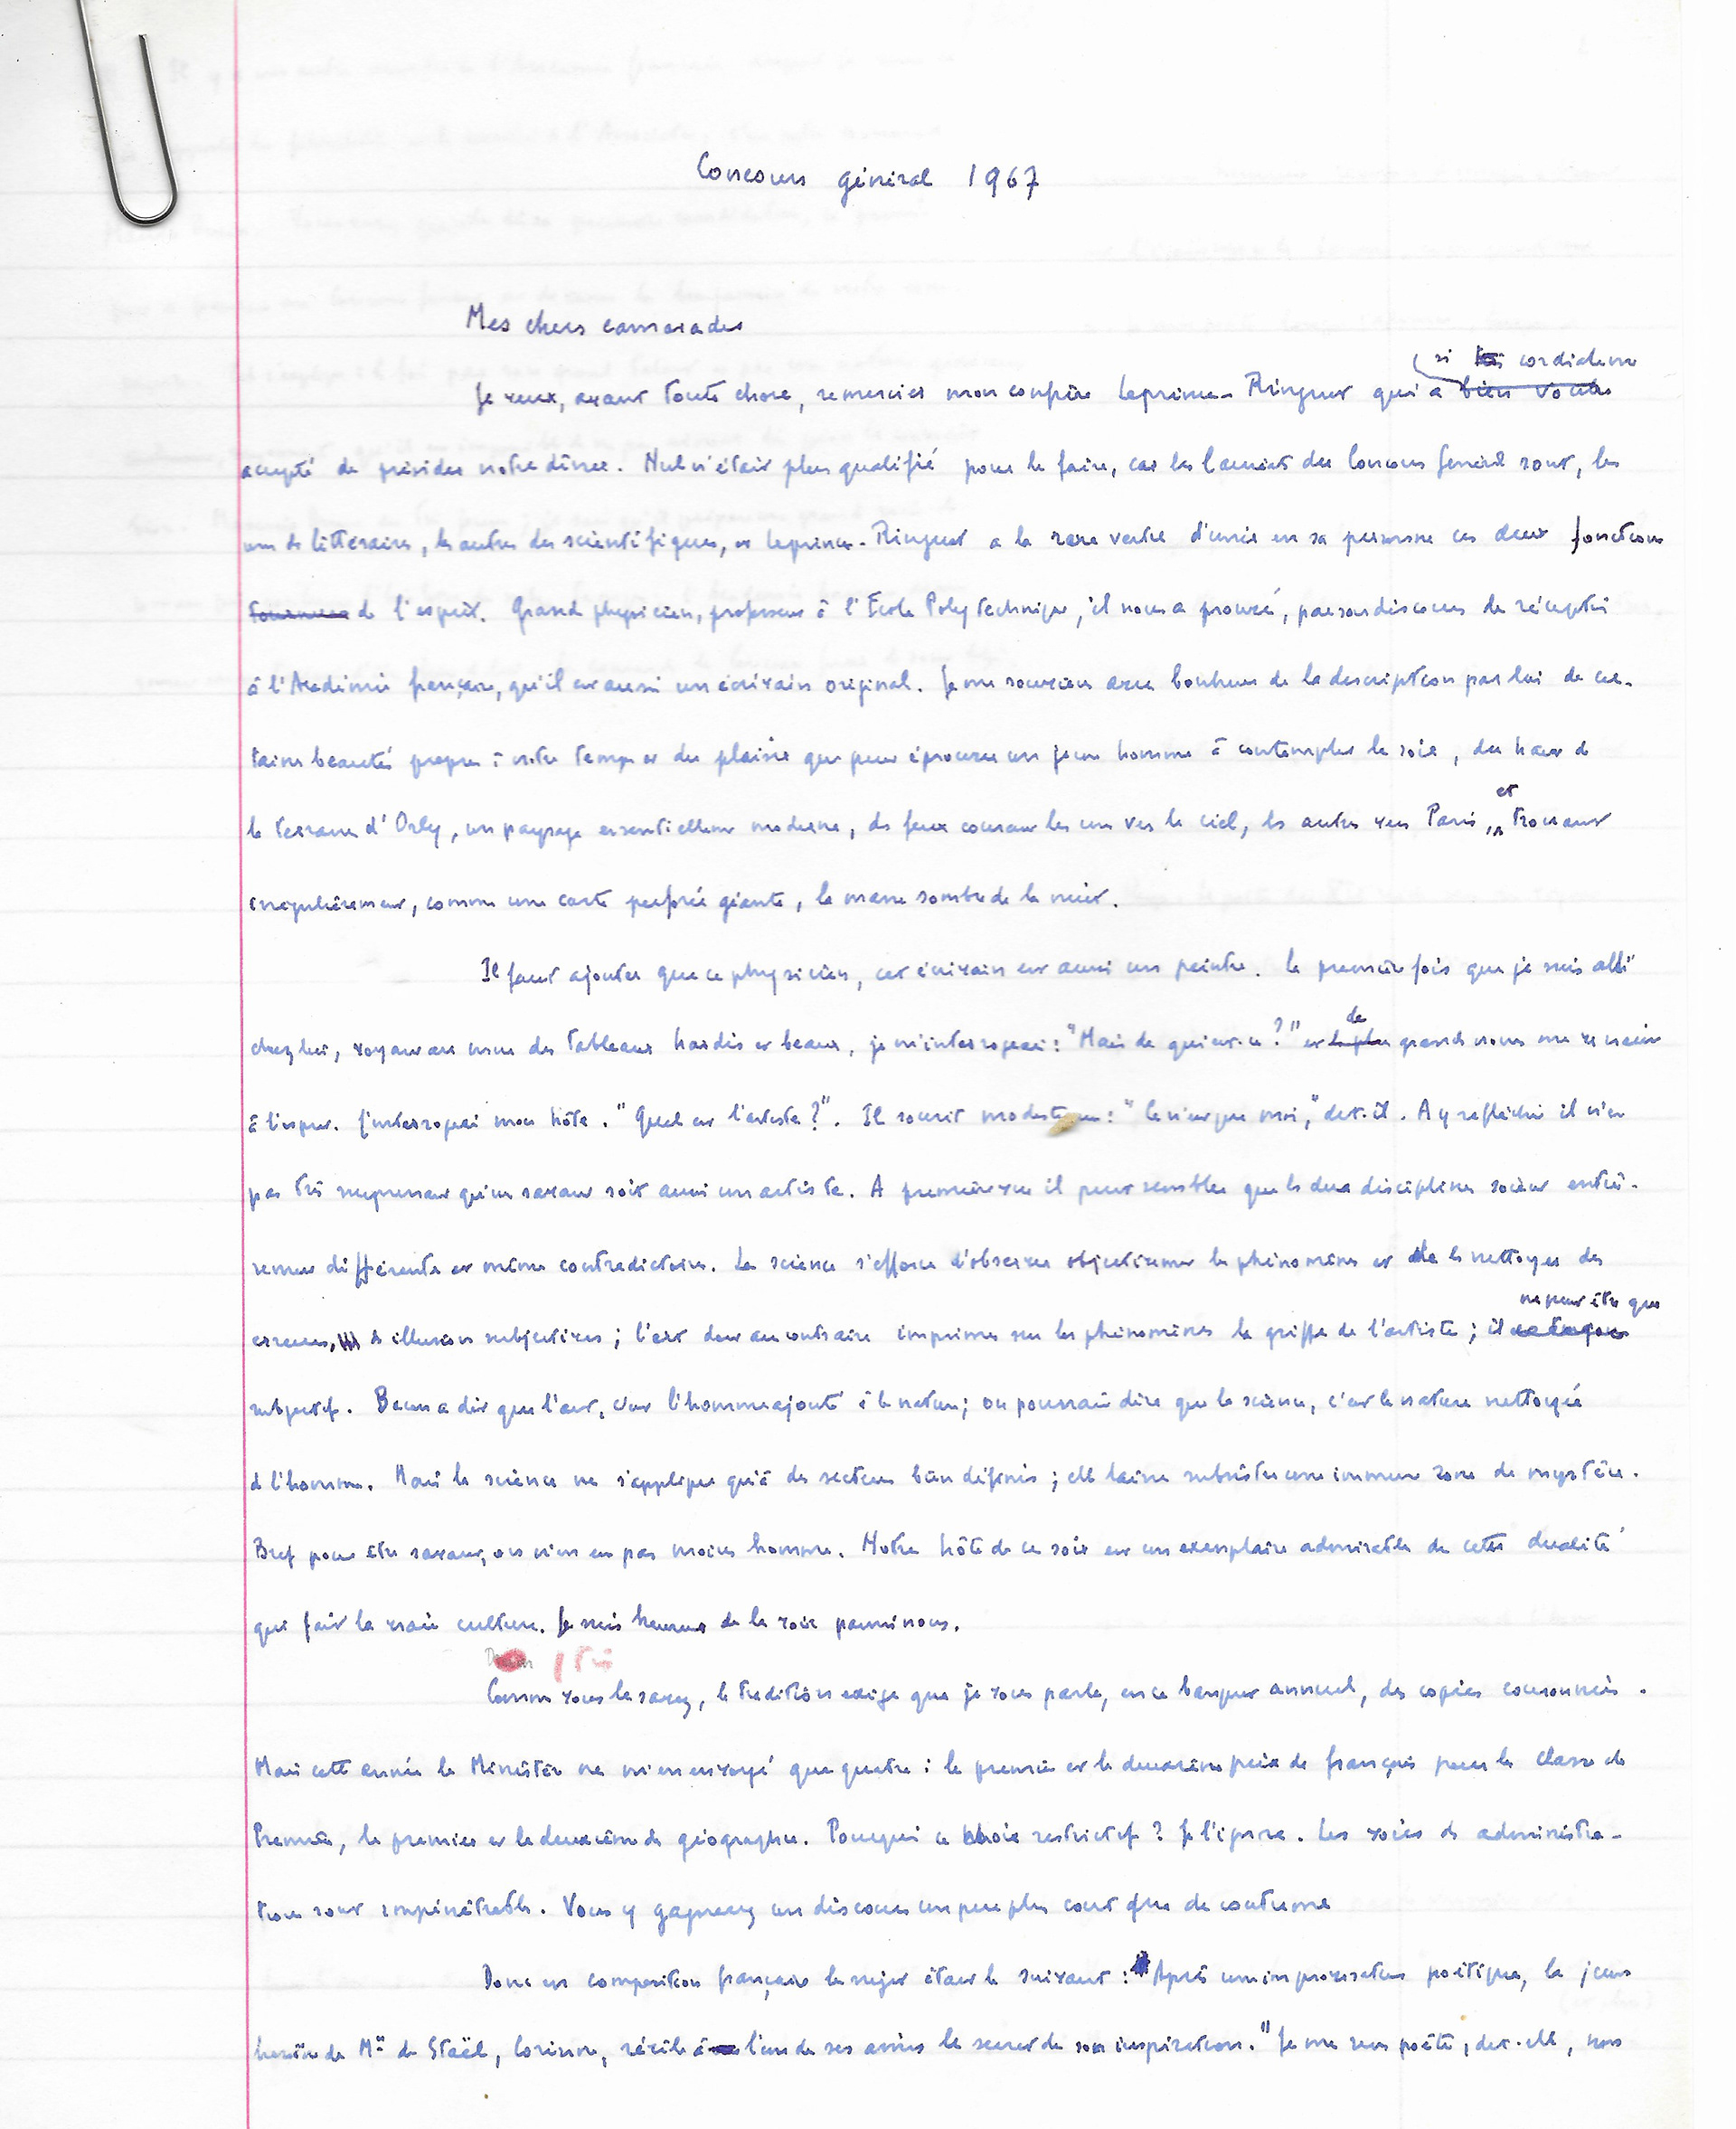 Concours général 1967
Mes chers camarades
Je veux, avant toute chose, remercier mon confrère Leprince-Ringuet qui a si cordialement
accepté de présider notre dîner. Nul n'était plus qualifié pour le faire, car les lauréats du Concours Général sont, les
uns des littéraires, les autres des scientifiques, et Leprince-Ringuet a la rare vertu d'unir en sa personne ces deux fonctions
de l'esprit. Grand physicien, professeur à l'Ecole Polytechnique, il nous a prouvé, par son discours de réception
à l'Académie française, qu'il est aussi un écrivain original. Je me souviens avec bonheur de la description par lui de cer-
taines beautés propres à notre temps et du plaisir que peut éprouver un jeune homme à contempler le soir, du haut de
la terrasse d'Orly, un paysage essentiellement moderne, des feux courant les uns vers le ciel, les autres vers Paris, et trouant
irrégulièrement, comme une carte perforée géante, la masse sombre de la nuit.
Il faut ajouter que ce physicien, cet écrivain est aussi un peintre. La première fois que je suis allé
chez lui, voyant au mur des tableaux hardis et beaux, je m'interrogeai : "Mais de qui est-ce ?" et de grands noms me venaient
à l'esprit. J'interrogeai mon hôte. "Quel est l'artiste ?". Il sourit modestement : "Ce n'est que moi," dit-il. A y réfléchir il n'est
pas très surprenant qu'un savant soit aussi un artiste. A première vue il peut sembler que les deux disciplines soient entiè-
rement différentes et même contradictoires. La science s'efforce d'observer objectivement les phénomènes et de les nettoyer des
erreurs, des illusions subjectives ; l'art doit au contraire imprimer sur les phénomènes la griffe de l'artiste ; il ne peut être que
subjectif. Bacon a dit que l'art, c'est l'homme ajouté à la nature ; on pourrait dire que la science, c'est la nature nettoyée
de l'homme. Mais la science ne s'applique qu'à des secteurs bien définis ; elle laisse subsister une immense zone de mystère.
Bref pour être savant, on n'en est pas moins homme. Notre hôte de ce soir est un exemplaire admirable de cette dualité
qui fait la vraie culture. Je suis heureux de le voir parmi nous.
Comme vous le savez, la tradition exige que je vous parle, en ce banquet annuel, des copies couronnées.
Mais cette année le Ministère ne m'en a envoyé que quatre : le premier et le deuxième prix de français pour la classe de
Première, le premier et le deuxième de géographie. Pourquoi ce choix restrictif ? Je l'ignore. Les voies des administra-
tions sont impénétrables. Vous y gagnerez un discours un peu plus court que de coutume
Donc en composition française le sujet était le suivant : Après une improvisation poétique, la jeune
héroïne de Mme de Staël, Corinne, révèle à l'un de ses amis le secret de son inspiration. "Je me sens poète, dit-elle, non